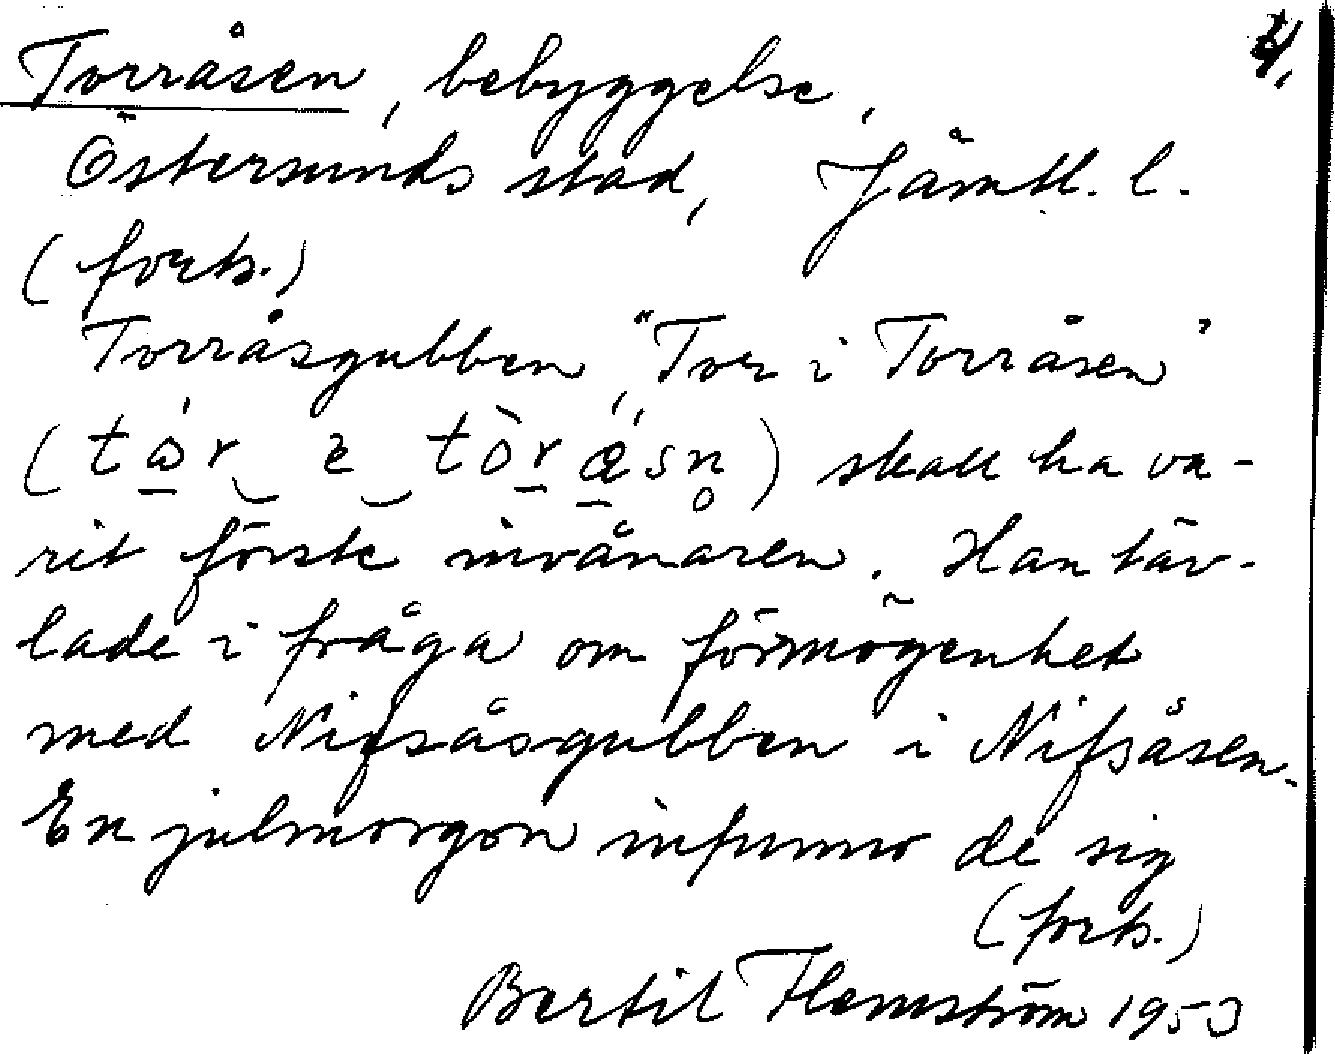 4.
Torråsen, bebyggelse,
Östersunds stad, Jämtl. l.
(forts.)
Torråsgubben, "Tor i Torråsen"
skall ha va-
rit förste invånaren. Han täv-
lade i fråga om förmögenhet
med Nifsåsgubben i Nifsåsen.
En julmorgon infunno de sig
(forts.)
Bertil Flemström 1953